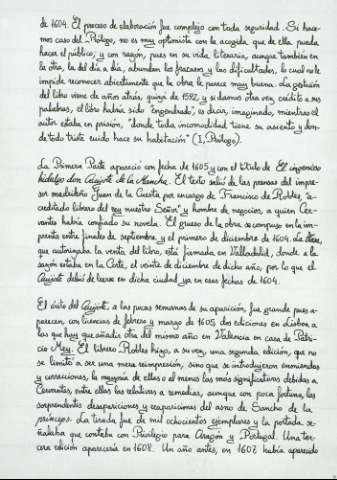 de 1604. El proceso de elaboración fue complejo con toda seguridad. Si hace-
mos caso del Prólogo, no es muy optimista con la acogida que de ella pueda
hacer el público; y con razón, pues en su vida literaria, aunque también en
la otra, la del día a día, abundan los fracasos y las dificultades, lo cual no le
impide reconocer abiertamente que la obra le parece muy buena. La gestación
del libro viene de años atrás, quizá de 1592, y si damos otra vez crédito a sus
palabras, el libro habría sido "engendrado", es decir, imaginado, mientras el
autor estaba en prisión, "donde toda incomodidad tiene su asiento y don-
de todo triste ruido hace su habitación" (I, Prólogo).
La Primera Parte apareció con fecha de 1605 y con el título de El ingenioso
hidalgo don Quijote de la Mancha. El texto salió de las prensas del impre-
sor madrileño Juan de la Cuesta por encargo de Francisco de Robles, "a-
creditado librero del rey nuestro Señor" y hombre de negocios, a quien Cer-
vantes había confiado su novela. El grueso de la obra se compuso en la im-
prenta entre finales de septiembre y el primero de diciembre de 1604. La
que autorizaba la venta del libro, está firmada en Valladolid, donde a la
sazón estaba en la Corte, el veinte de diciembre de dicho año, por lo que el
Quijote debió de leerse en dicha ciudad ya en esas fechas de 1604.
El éxito del Quijote, a las pocas semanas de su aparición, fue grande pues a-
parecen, con licencias de febrero y marzo de 1605, dos ediciones en Lisboa a
las que hay que añadir otra del mismo año en Valencia en casa de Patri-
cio Mey. El librero Robles hizo, a su vez, una segunda edición, que no
se limitó a ser una mera reimpresión, sino que se introdujeron enmiendas
y correcciones, la mayoría de ellas o al menos las más significativas debidas a
Cervantes, entre ellas las relativas a remediar, aunque con poca fortuna, las
sorprendentes desapariciones y reapariciones del asno de Sancho de la
princeps. La tirada fue de mil ochocientos ejemplares y la portada se-
ñalaba que contaba con Privilegio para Aragón y Portugal. Una ter-
cera edición aparecería en 1608. Un año antes, en 1607 había aparecido